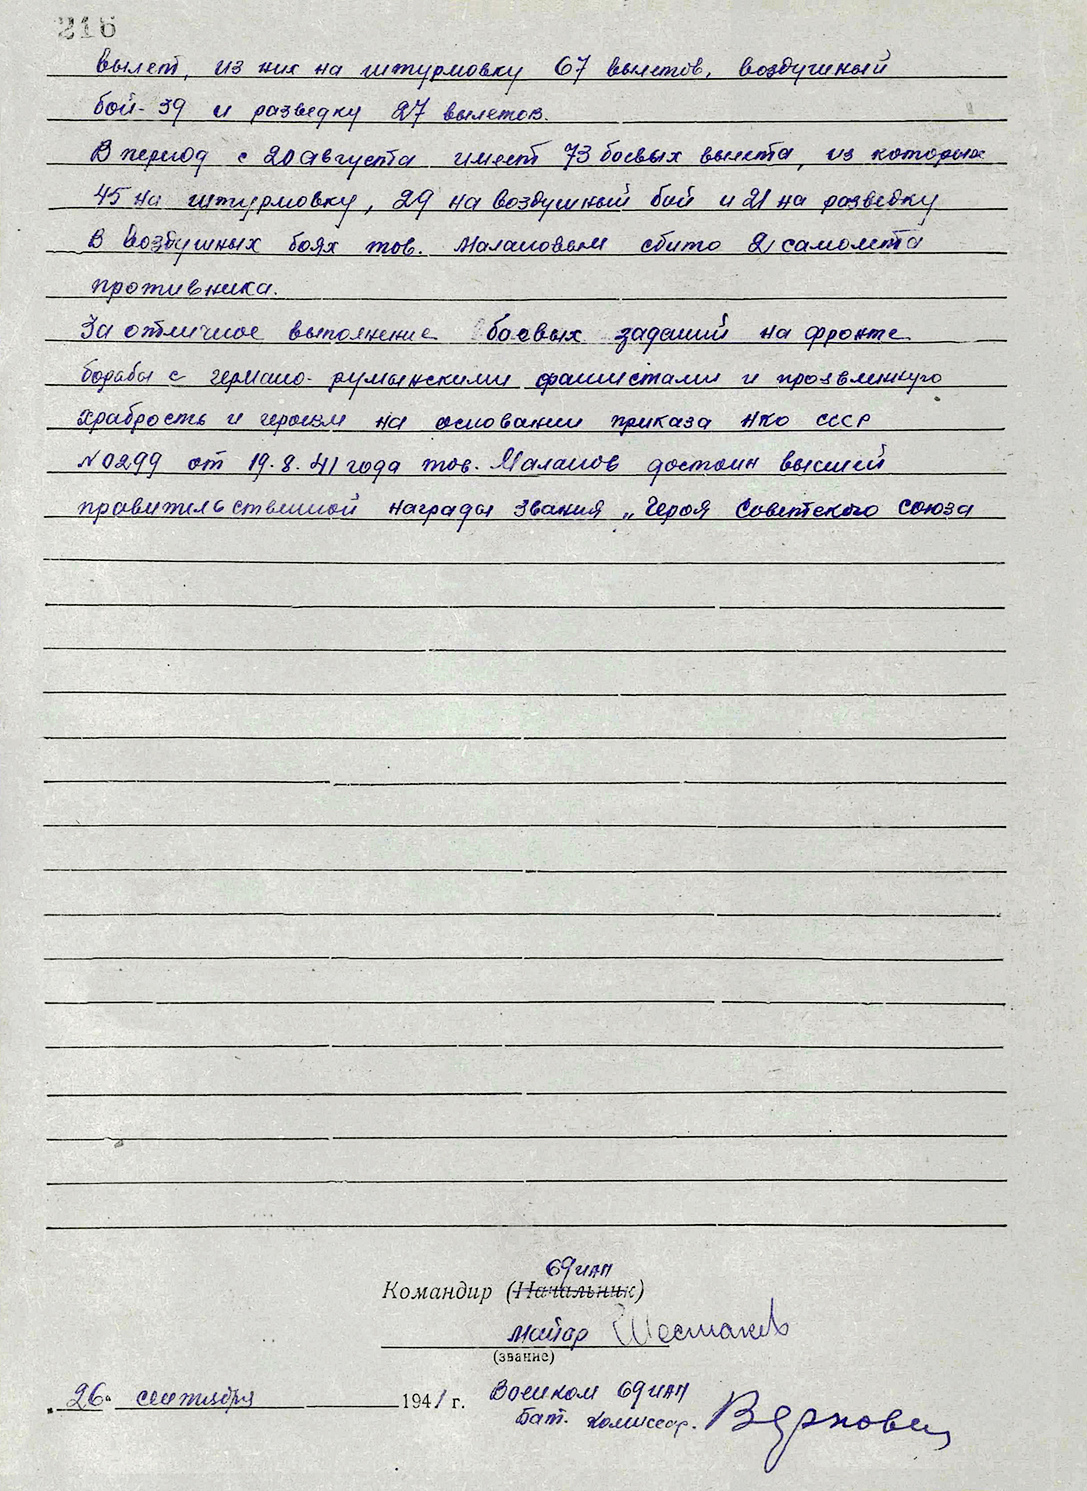 216
вылет, из них на штурмовку 67 вылетов, воздушный
бой- 39 и разведку 27 вылетов.
В период с 20 августа имеет 73 боевых вылета, из которых
45 на штурмовку, 29 на воздушный бой и 21 на разведку
В воздушных боях тов. Малановым сбито 2 самолета
противника.
За отличное выполнение боевых заданий на фронте
борьбы с германо-румынскими фашистами и проявленную
храбрость и героизм на основании приказа НКО СССР
№0299 от 19.8.41 года тов. Маланов достоин высшей
правительственной награды звания „Героя Советского Союза
69 ИАП
Командир (Начальник)
Майор Шестаков
(звание)
„26" сентября 1941 г. Военком 69 ИАП
Бат. комиссар. Верховец